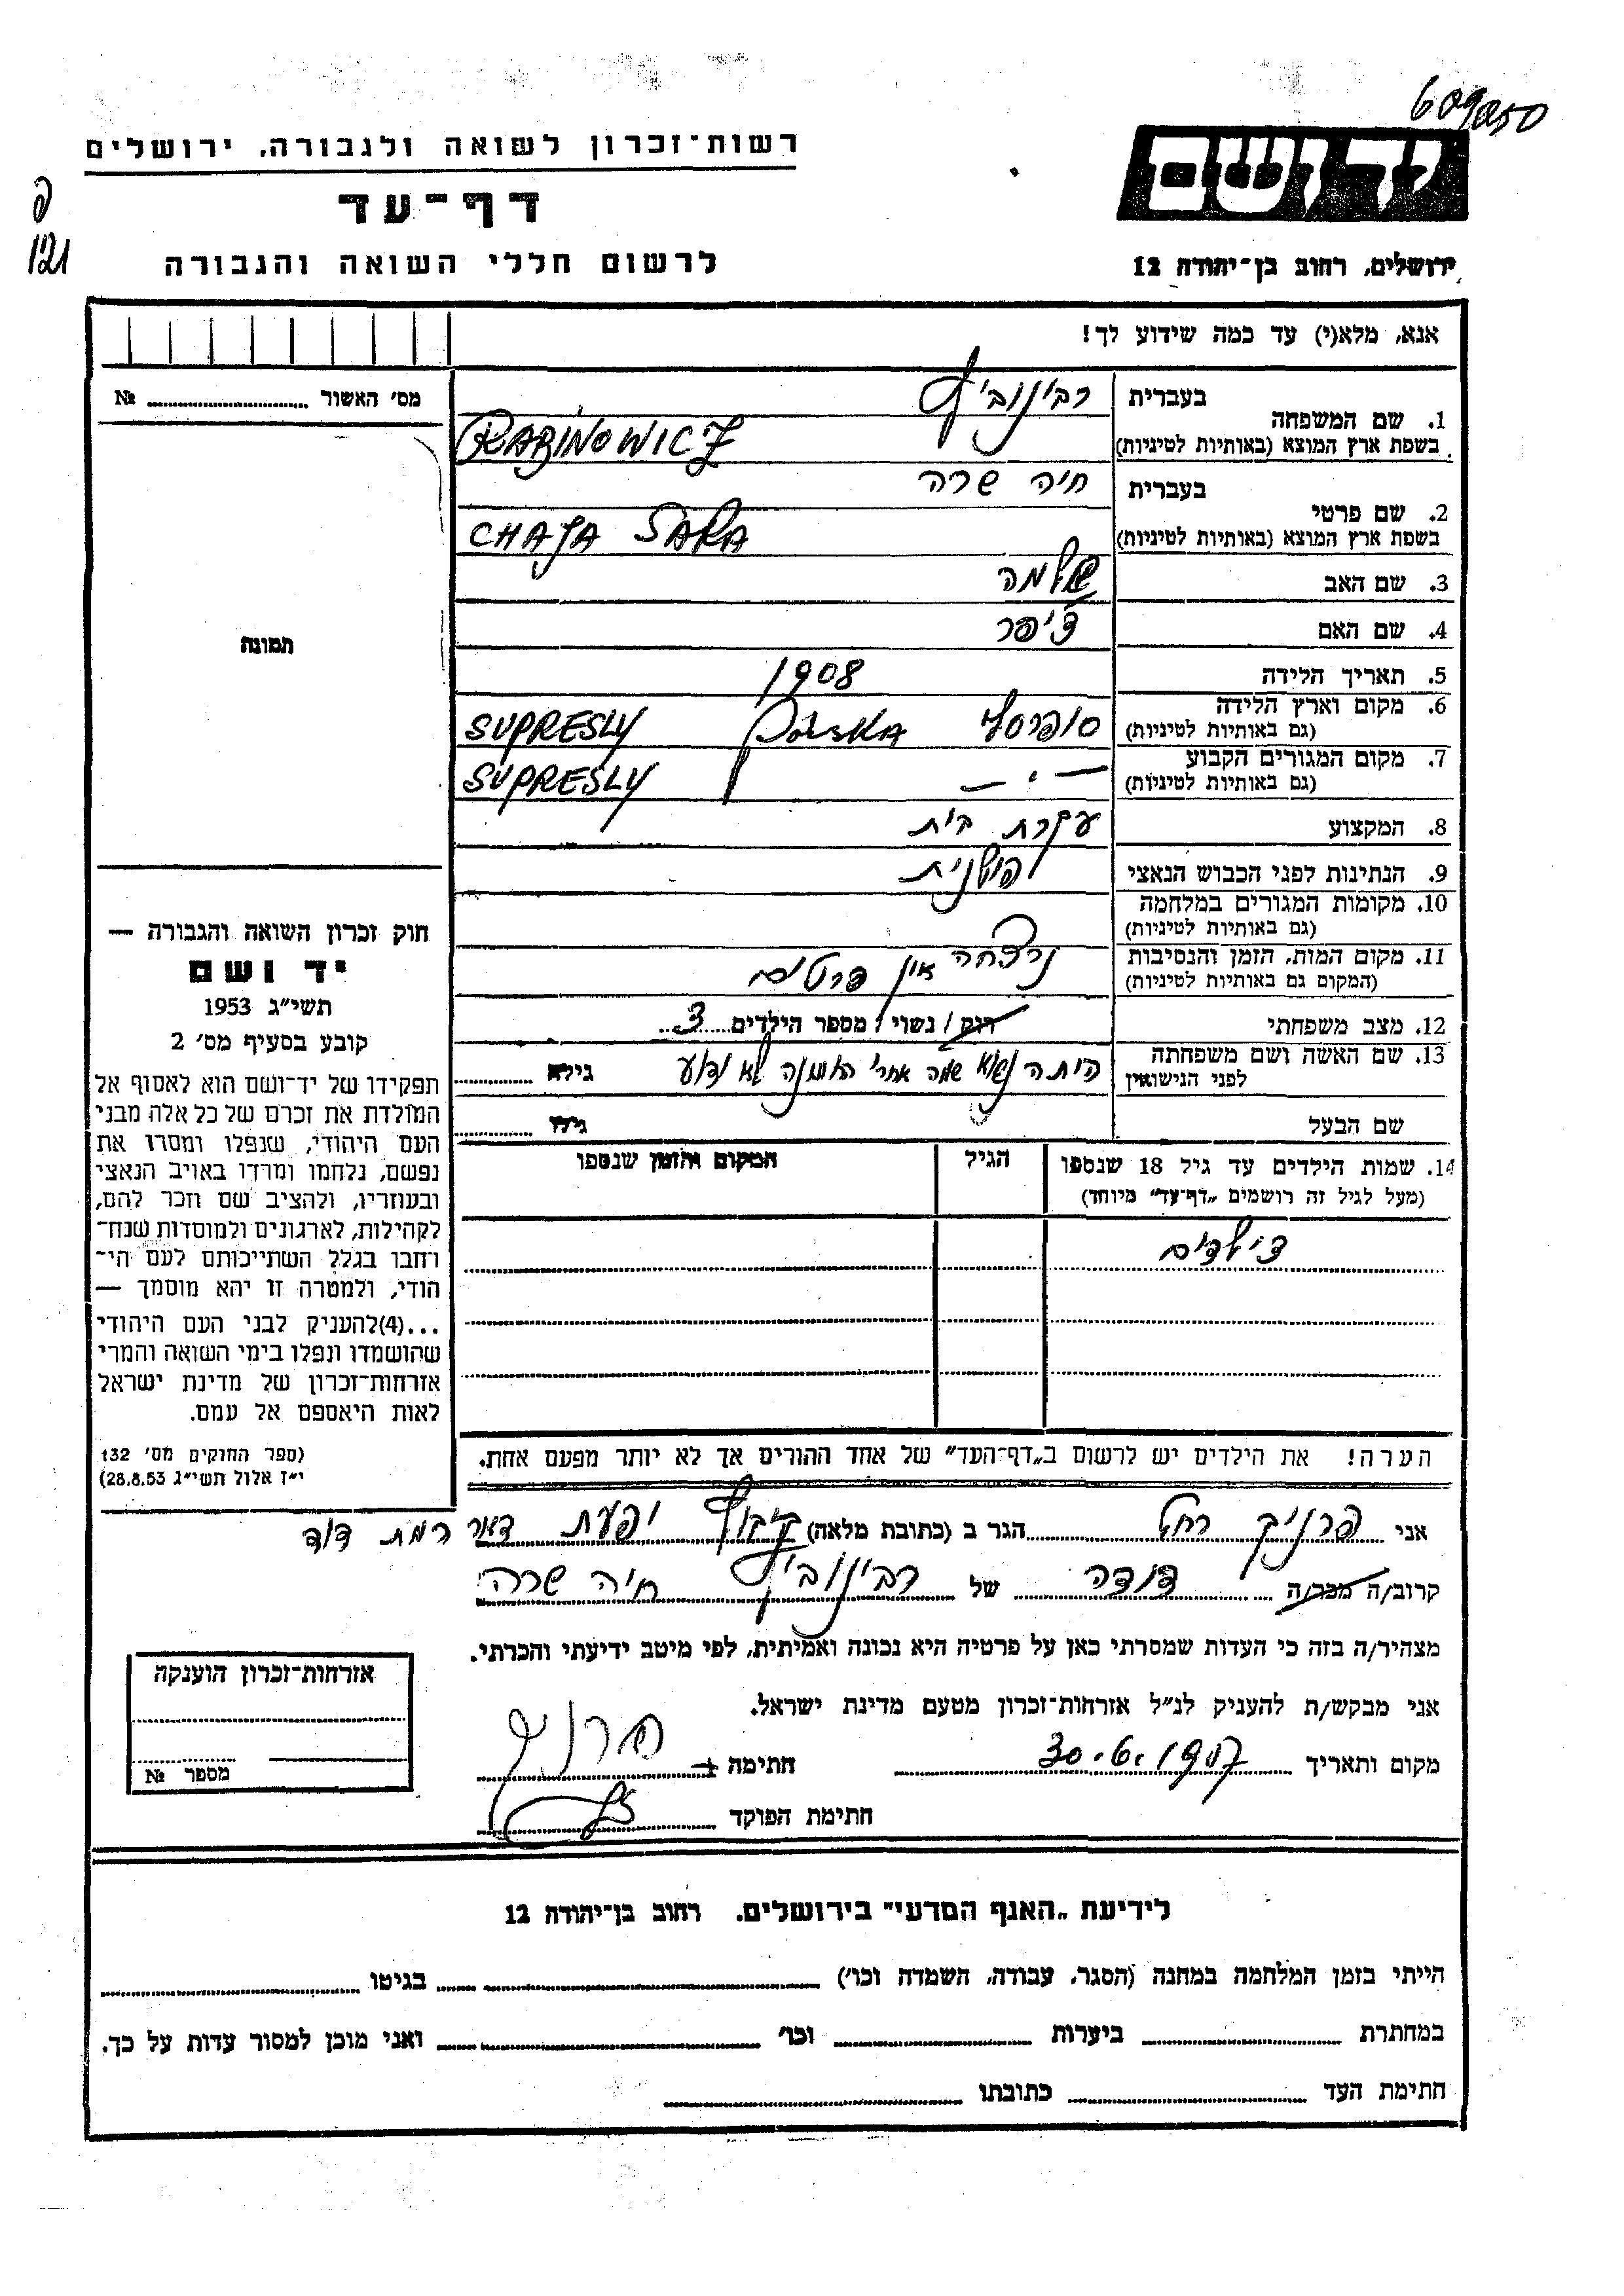 609050
רשות־זכרון לשואה ולגבורה, ירושלים
יד ושם
דף־עד
121
לרשום חללי השואה והגבורה
ירושלים, רחוב בן־יהודה 12
אנא, מלא(י) עד כמה שידוע לך!
מס׳ האשור № 
1. שם המשפחה
בעברית רבינוביץ
בשפת ארץ המוצא (באותיות לטיניות) RABINOWICZ
2. שם פרטי
בעברית חיה שרה
בשפת ארץ המוצא (באותיות לטיניות) CHAJA SARA
3. שם האב שלמה
4. שם האם
5. תאריך הלידה 1908
6. מקום וארץ הלידה
(גם באותיות לטיניות) SUPRESLY Polska
7. מקום המגורים הקבוע
(גם באותיות לטיניות) SUPRESLY — . —
8. המקצוע עקרת בית
9. הנתינות לפני הכבוש הנאצי פולנית
10. מקומות המגורים במלחמה
(גם באותיות לטיניות)
11. מקום המות, הזמן והנסיבות
(המקום גם באותיות לטיניות) נרצחה אין פרטים
12. מצב משפחתי רוק / נשוי / מספר הילדים 3
13. שם האשה ושם משפחתה
לפני הנישואין היתה נשואה שמה אחרי החתונה לא ידוע גילא
שם הבעל גילו
14. שמות הילדים עד גיל 18 שנספו
(מעל לגיל זה רושמים „דף־עד” מיוחד)
הגיל
המקום והזמן שנספו
3 ילדים
הערה! את הילדים יש לרשום ב„דף־העד” של אחד ההורים אך לא יותר מפעם אחת.
תמונה
חוק זכרון השואה והגבורה —
יד ושם
תשי״ג 1953
קובע בסעיף מס׳ 2
תפקידו של יד־ושם הוא לאסוף אל
המולדת את זכרם של כל אלה מבני
העם היהודי, שנפלו ומסרו את
נפשם, נלחמו ומרדו באויב הנאצי
ובעוזריו, ולהציב שם וזכר להם,
לקהילות, לארגונים ולמוסדות שנח־
רחבו בגלל השתייכותם לעם הי־
הודי, ולמטרה זו יהא מוסמך —
...(4)להעניק לבני העם היהודי
שהושמדו ונפלו בימי השואה והמרי
אזרחות־זכרון של מדינת ישראל
לאות היאספם אל עמם.
(ספר החוקים מס׳ 132
י״ז אלול תשי״ג 28.8.53)
אני פרניק רחל הגר ב (כתובת מלאה) קיבוץ יפעת דאר רמת דוד
קרוב/ה מכר/ה דודה של רבינוביץ חיה שרה
מצהיר/ה בזה כי העדות שמסרתי כאן על פרטיה היא נכונה ואמיתית, לפי מיטב ידיעתי והכרתי.
אני מבקש/ת להעניק לנ״ל אזרחות־זכרון מטעם מדינת ישראל.
מקום ותאריך חתימה פרניק
חתימת הפוקד
אזרחות־זכרון הוענקה
מספר №
לידיעת „האגף המדעי” בירושלים, רחוב בן־יהודה 12
הייתי בזמן המלחמה במחנה (הסגר, עבודה, השמדה וכו׳) בגיטו
במחתרת ביערות וכו׳ ואני מוכן למסור עדות על כך.
חתימת העד כתובתו